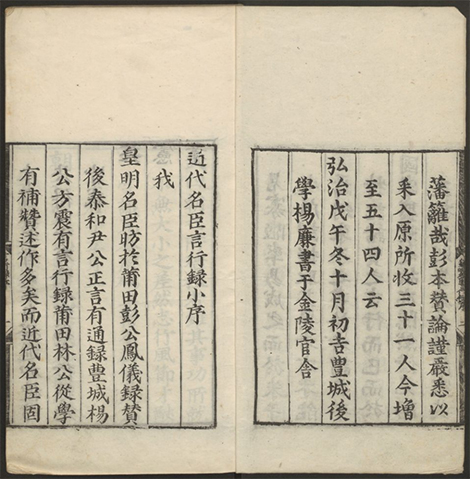 藩籬哉彭本賛論謹嚴悉以
乘入原所收三十一人今增
至五十四人云
弘治戊午冬十月初吉豐城後
學楊廉書于金陵官舍
近代名臣言行錄小序
我
皇明名臣昉於莆田彭公鳳儀錄賛
後泰和尹公正言有通錄豐城楊
公方震有言行錄莆田林公從學
有補賛述作多矣而近代名臣固